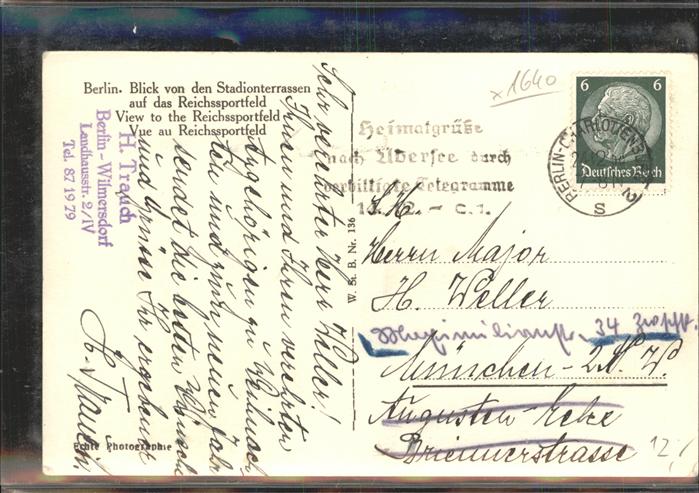 Berlin. Blick von den Stadionterrassen
auf das Reichssportfeld
View to the Reichssportfeld
Vue au Reichssportfeld
H. Trauch
Berlin-Wilmersdorf
Landhausstr. 2/IV
Tel. 87 19 79
Sehr verehrter Herr Weller!
Ihnen und Ihren verehrten
Angehörigen zu Weihnach
ten und zum neuen Jahr
sendet die besten Wünsche
und Grüsse Ihr ergebener
H. Trauch.
Echte Photographie
W. St. B. Nr. 136
x 1640
Heimatgrüße
nach Übersee durch
verbilligte Telegramme
BERLIN-CHARLOTTEN
S
6 6
Deutsches Reich
Herrn Major
H. Weller
34
München-2 N.W.
Augusten-Ecke
Briennerstrasse
12